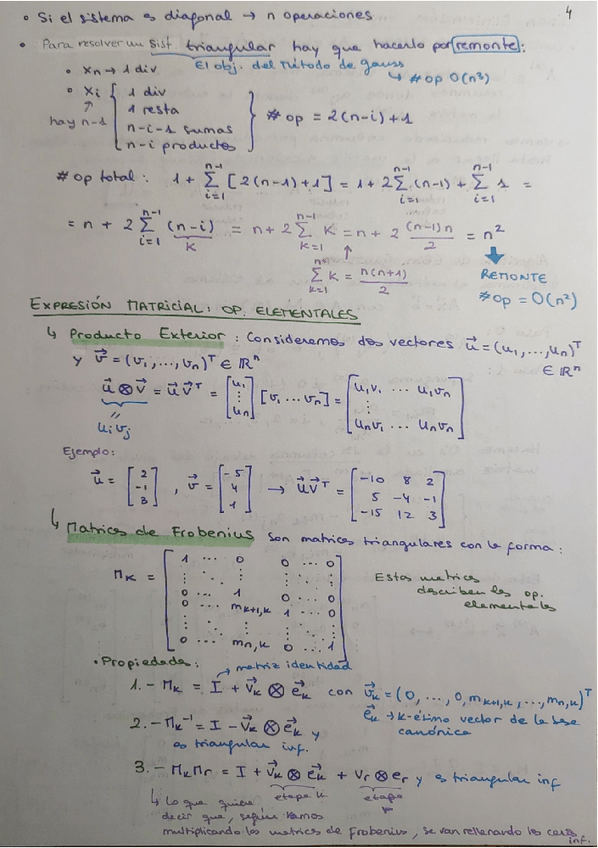 4
• Si el sistema es diagonal → n operaciones
• Para resolver un sist. triangular hay que hacerlo por remonte:
El obj. del método de gauss ↳ #op O(n³)
• Xn → 1 div
• Xi { 1 div
1 resta
n-i-1 sumas
n-i productos } #op = 2(n-i)+1
↑ hay n-1
#op total: 1 + ∑_{i=1}^{n-1} [2(n-1)+1] = 1 + 2∑_{i=1}^{n-1} (n-1) + ∑_{i=1}^{n-1} 1 =
= n + 2 ∑_{i=1}^{n-1} (n-i) = n + 2 ∑_{K=1}^{n-1} K = n + 2 (n-1)n/2 = n²
K
∑ K = n(n+1)/2
REMONTE
#op = O(n²)
EXPRESIÓN MATRICIAL: OP. ELEMENTALES
↳ Producto Exterior: Consideremos dos vectores u⃗ = (u₁,...,uₙ)ᵀ
y v⃗ = (v₁,...,vₙ)ᵀ ∈ ℝⁿ
∈ ℝⁿ
u⃗ ⊗ v⃗ = u⃗ v⃗ᵀ = [u₁ ⋮ uₙ] [v₁ ... vₙ] = [u₁v₁ ... u₁vₙ ⋮ uₙv₁ ... uₙvₙ]
=
uᵢvⱼ
Ejemplo:
u⃗ = [2 -1 3], v⃗ = [-5 4 1] → u⃗ v⃗ᵀ = [-10 8 2
5 -4 -1
-15 12 3]
↳ Matrices de Frobenius son matrices triangulares con la forma:
M_K = [1 ... 0 0 ... 0
⋮ ⋱ ⋮ ⋮ ⋱ ⋮
0 ... 1 0 ... 0
0 ... m_{K+1,K} 1 ... 0
⋮ ⋮ ⋮ ⋱ ⋮
0 ... m_{n,K} 0 ... 1]
Estas matrices
describen las op.
elementales
• Propiedades:
→ matriz identidad
1.- M_K = I + v⃗_K ⊗ e⃗_K con v⃗_K = (0,...,0,m_{K+1,K},...,m_{n,K})ᵀ
e⃗_K → K-ésimo vector de la base
canónica
2.- M_K⁻¹ = I - v⃗_K ⊗ e⃗_K y
es triangular inf.
3.- M_K M_r = I + v⃗_K ⊗ e⃗_K + v_r ⊗ e_r y es triangular inf
etapa K etapa r
↳ Lo que quiere
decir que, según vamos
multiplicando las matrices de Frobenius, se van rellenando las
inf.